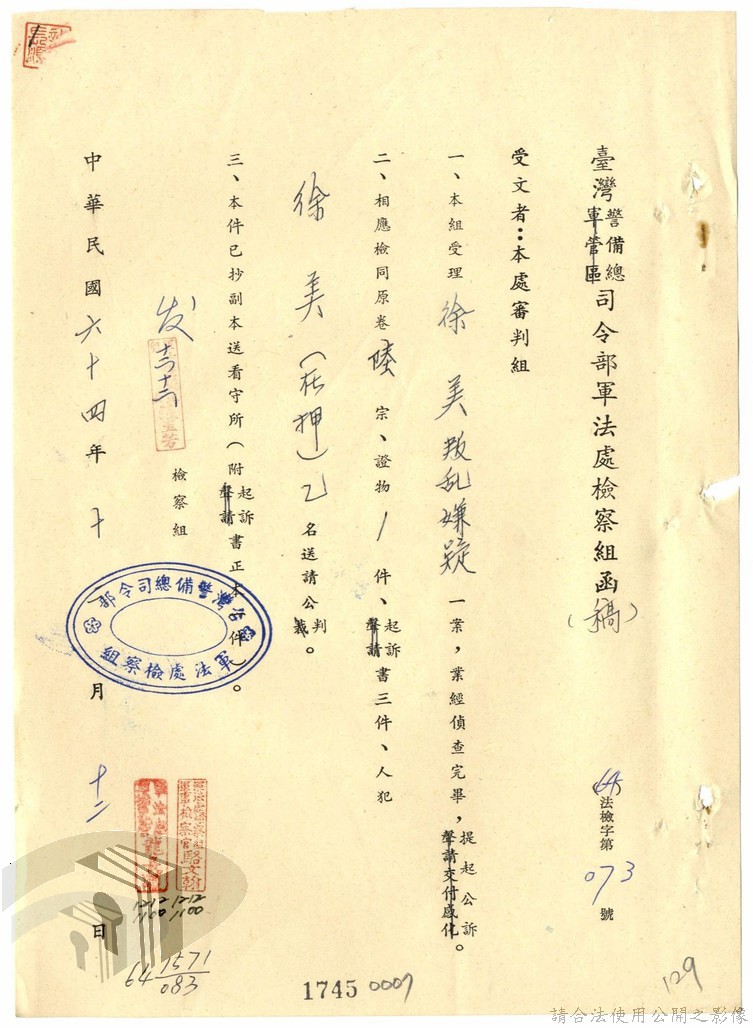 臺灣警備總軍管區司令部軍法處檢察組函(稿)
64法檢字第073號
受文者：本處審判組
一、本組受理徐美叛乱嫌疑一案，業經偵查完畢，提起公訴聲請交付感化。
二、相應檢同原卷陸宗、證物1件、起訴聲請書三件、人犯
徐美(在押)乙名送請公判裁。
三、本件已抄副本送看守所(附起訴聲請書正本件)。
发
檢察組
中華民國六十四年十月十二日
台灣警備總司令部
軍法處檢察組
軍事檢察官駱文翰
1212
1100
1212
1100
64 1571
083
1745
0007
129
請合法使用公開之影像